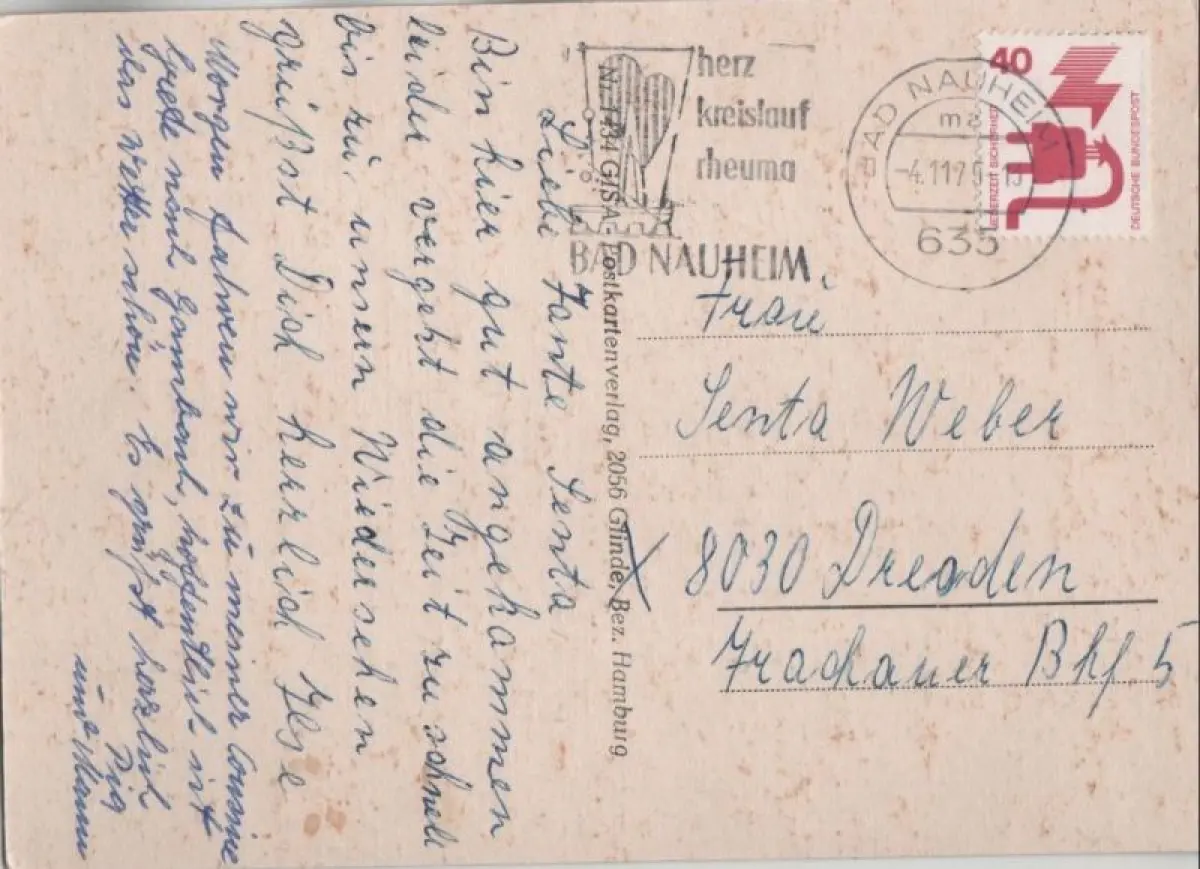 herz
kreislauf
rheuma
BAD NAUHEIM
BAD NAUHEIM
-4.11.7
635
40
JEDERZEIT SICHERHEIT
DEUTSCHE BUNDESPOST
Frau
Senta Weber
8030 Dresden
Trachauer Bhf. 5
GISA-Postkartenverlag, 2056 Glinde, Bez. Hamburg
Liebe Tante Senta
Bin hier gut angekommen
leider vergeht die Zeit zu schnell
bis zu unsern Wiedersehen
grüßst Dich herzlich Ilse
Morgen fahren wir zu meiner Cousine
nach hoffentlich ist
das Wetter schön. Es grüßt herzlich
Dich